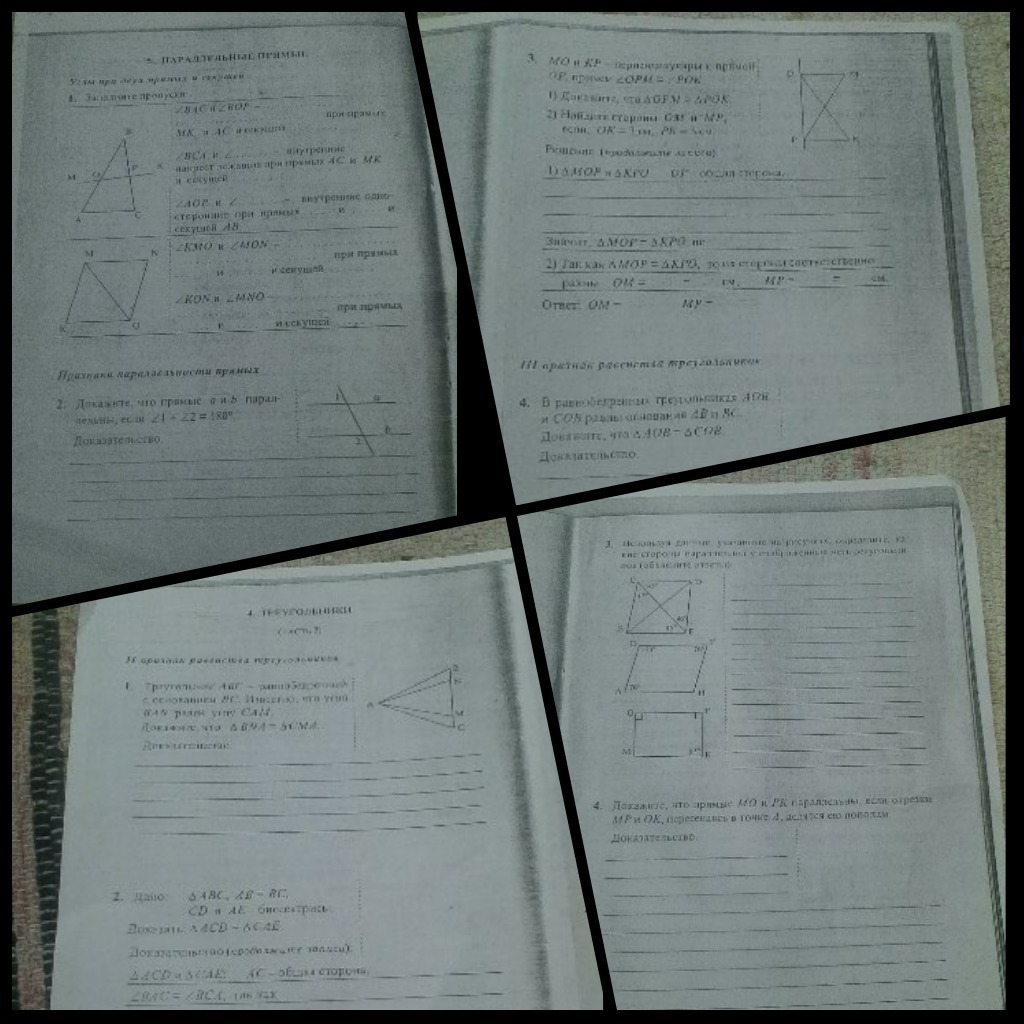 5. ПАРАЛЛЕЛЬНЫЕ ПРЯМЫЕ
Углы при двух прямых и секущей
1. Заполните пропуски
∠BAC и ∠BOP –
при прямых
MK и AC и секущей
∠BCA и ∠ – внутренние
накрест лежащие при прямых AC и MK
и секущей
∠AOP и ∠ – внутренние одно-
сторонние при прямых и и
секущей AB
∠KMO и ∠MON –
при прямых
и и секущей
∠KON и ∠MNO –
при прямых
и и секущей
B
M O P K
A C
M N
K O
Признаки параллельности прямых
2. Докажите, что прямые a и b парал-
лельны, если ∠1 + ∠2 = 180°.
Доказательство.
1 a
2 b
3. MO и KP – перпендикуляры к прямой
OP, причем ∠OPM = ∠POK
1) Докажите, что
2) Найдите стороны OM и MP,
если, OK = см, PK = см
Решение (продолжите записи)
1) △MOP и △KPO OP – общая сторона,
Значит, △MOP = △KPO, по
2) Так как △MOP = △KPO, то их стороны соответственно
равны OM = = см, MP = = см.
Ответ: OM = MP =
O M
P K
III признак равенства треугольников
4. В равнобедренных треугольниках AOB
и COB равны основания AB и BC.
Докажите, что △AOB = △COB.
Доказательство.
4. ТРЕУГОЛЬНИКИ
(часть 2)
II признак равенства треугольников
1. Треугольник ABC – равнобедренный
с основанием BC. Известно, что угол
BAN равен углу CAM.
Докажите, что △BNA = △CMA.
Доказательство.
B
N
A
M
C
2. Дано: △ABC, AB = BC,
CD и AE – биссектрисы.
Доказать: △ACD = △CAE
Доказательство (продолжите записи):
△ACD и △CAE: AC – общая сторона,
∠BAC = ∠BCA, так как
3. Используя данные, указанные на рисунках, определите, ка-
кие стороны параллельны у изображенных четырехугольни-
ков (объясните ответы):
C D
B E
D F
A H
O P
M K
4. Докажите, что прямые MO и PK параллельны, если отрезки
MP и OK, пересекаясь в точке A, делятся ею пополам
Доказательство.